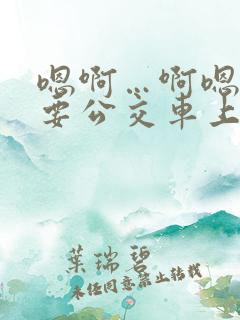 嗯啊…啊嗯
要公交车上
葉瑞碧
未经同意禁止转载